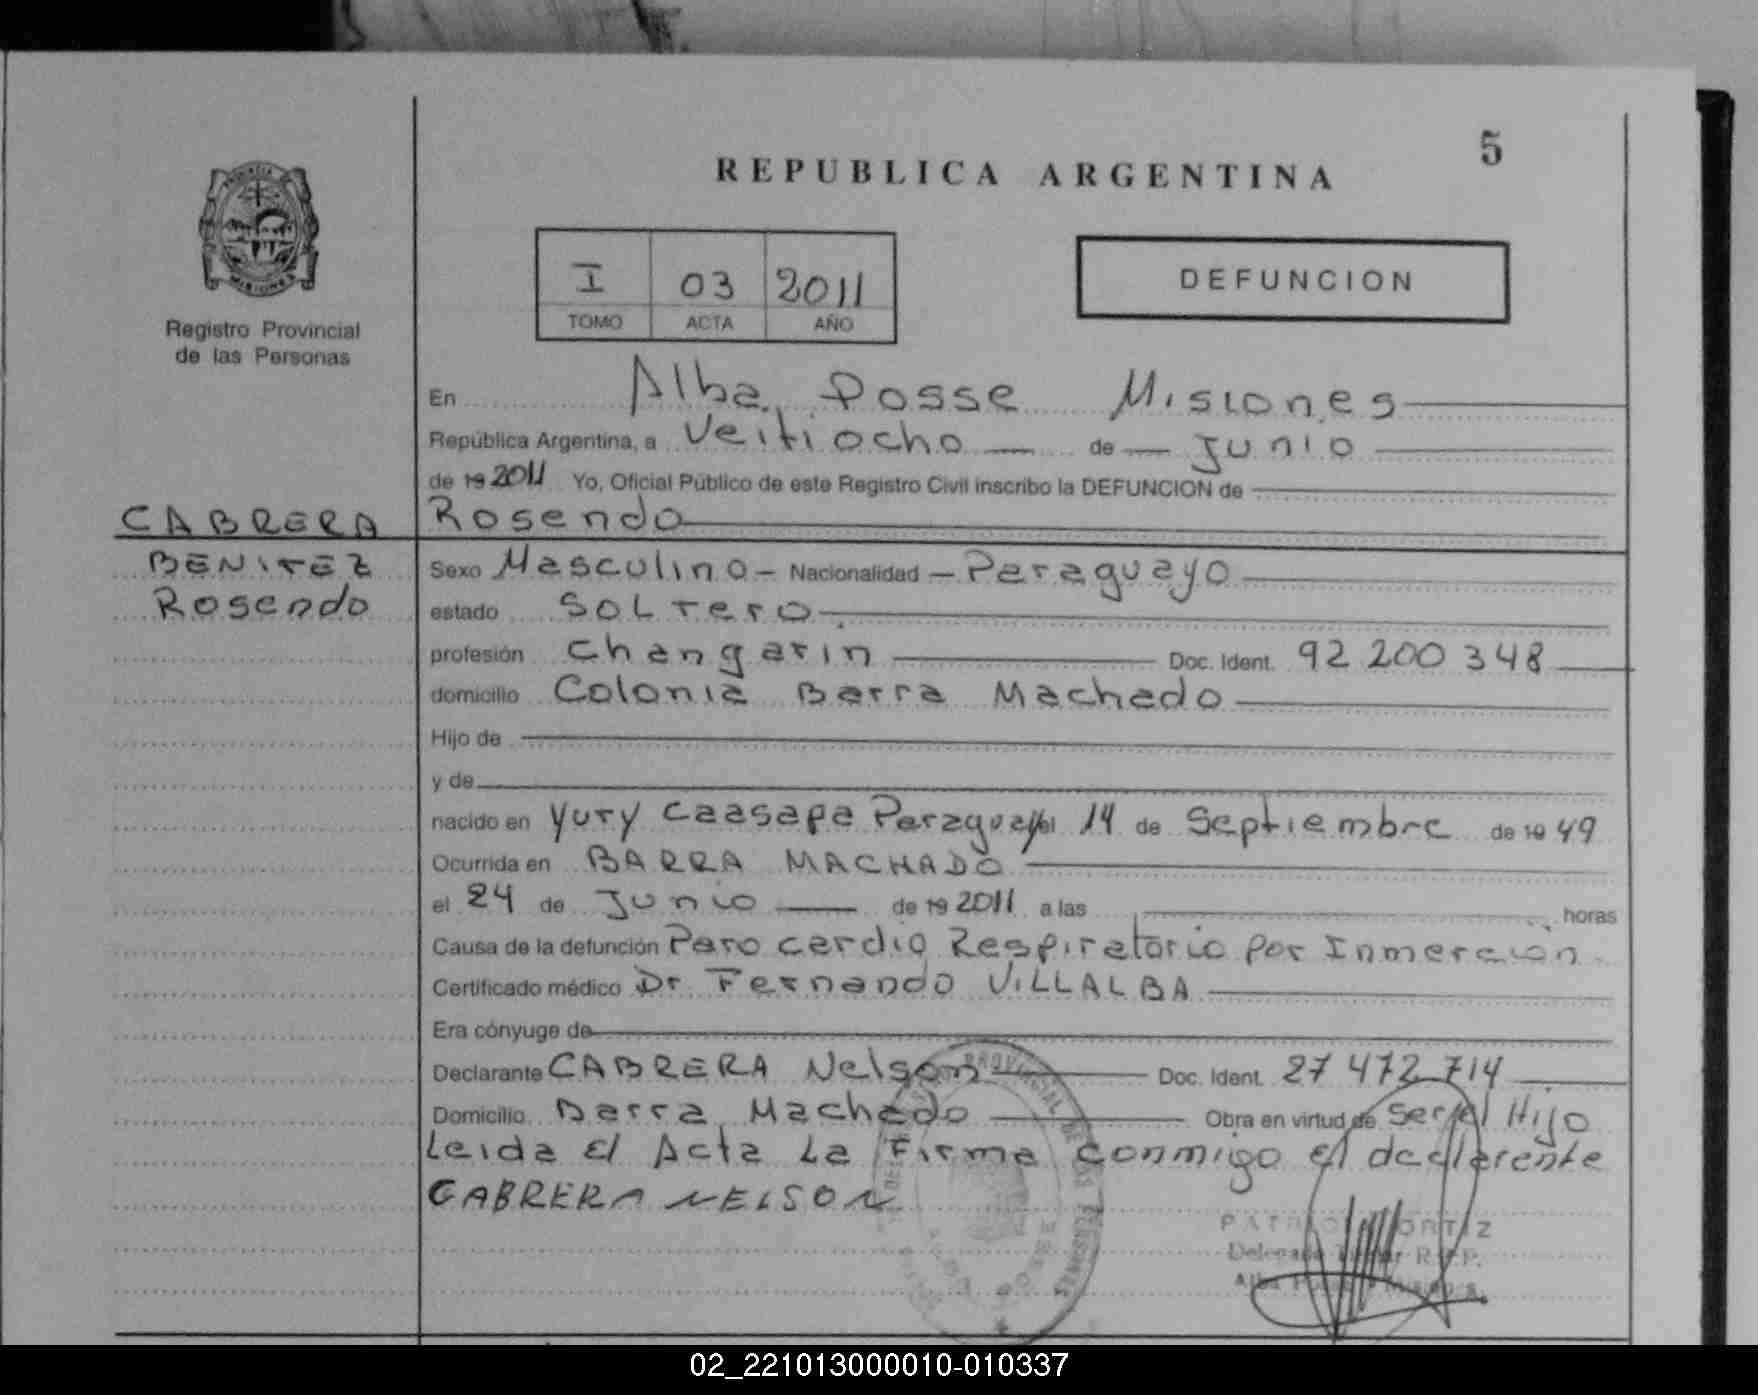 5
REPUBLICA ARGENTINA
I 03 2011
TOMO ACTA AÑO
DEFUNCION
PROVINCIA
MISIONES
Registro Provincial
de las Personas
En Alba Posse Misiones
República Argentina, a Veitiocho de Junio
de 19 2011 Yo, Oficial Público de este Registro Civil inscribo la DEFUNCION de
CABRERA Rosendo
BENITEZ
Rosendo
Sexo Masculino - Nacionalidad - Paraguayo
estado SOLTero
profesión Changarin Doc. Ident. 92 200 348
domicilio Colonia Barra Machado
Hijo de
y de
nacido en Yuty Caasapa Paraguay el 14 de Septiembre de 19 49
Ocurrida en BARRA MACHADO
el 24 de Junio de 19 2011 a las horas
Causa de la defunción Paro cardio Respiratorio por Inmercion
Certificado médico Dr Fernando VILLALBA
Era cónyuge de
Declarante CABRERA Nelson Doc. Ident. 27 472 714
Domicilio Barra Machado Obra en virtud de Ser el Hijo
Leida El Acta La Firma conmigo el declarente
CABRERA NELSON
PROVINCIAL DE LAS PERSONAS
POSSE
ORTIZ
Delegado R.P.P.
Alba
02_221013000010-010337